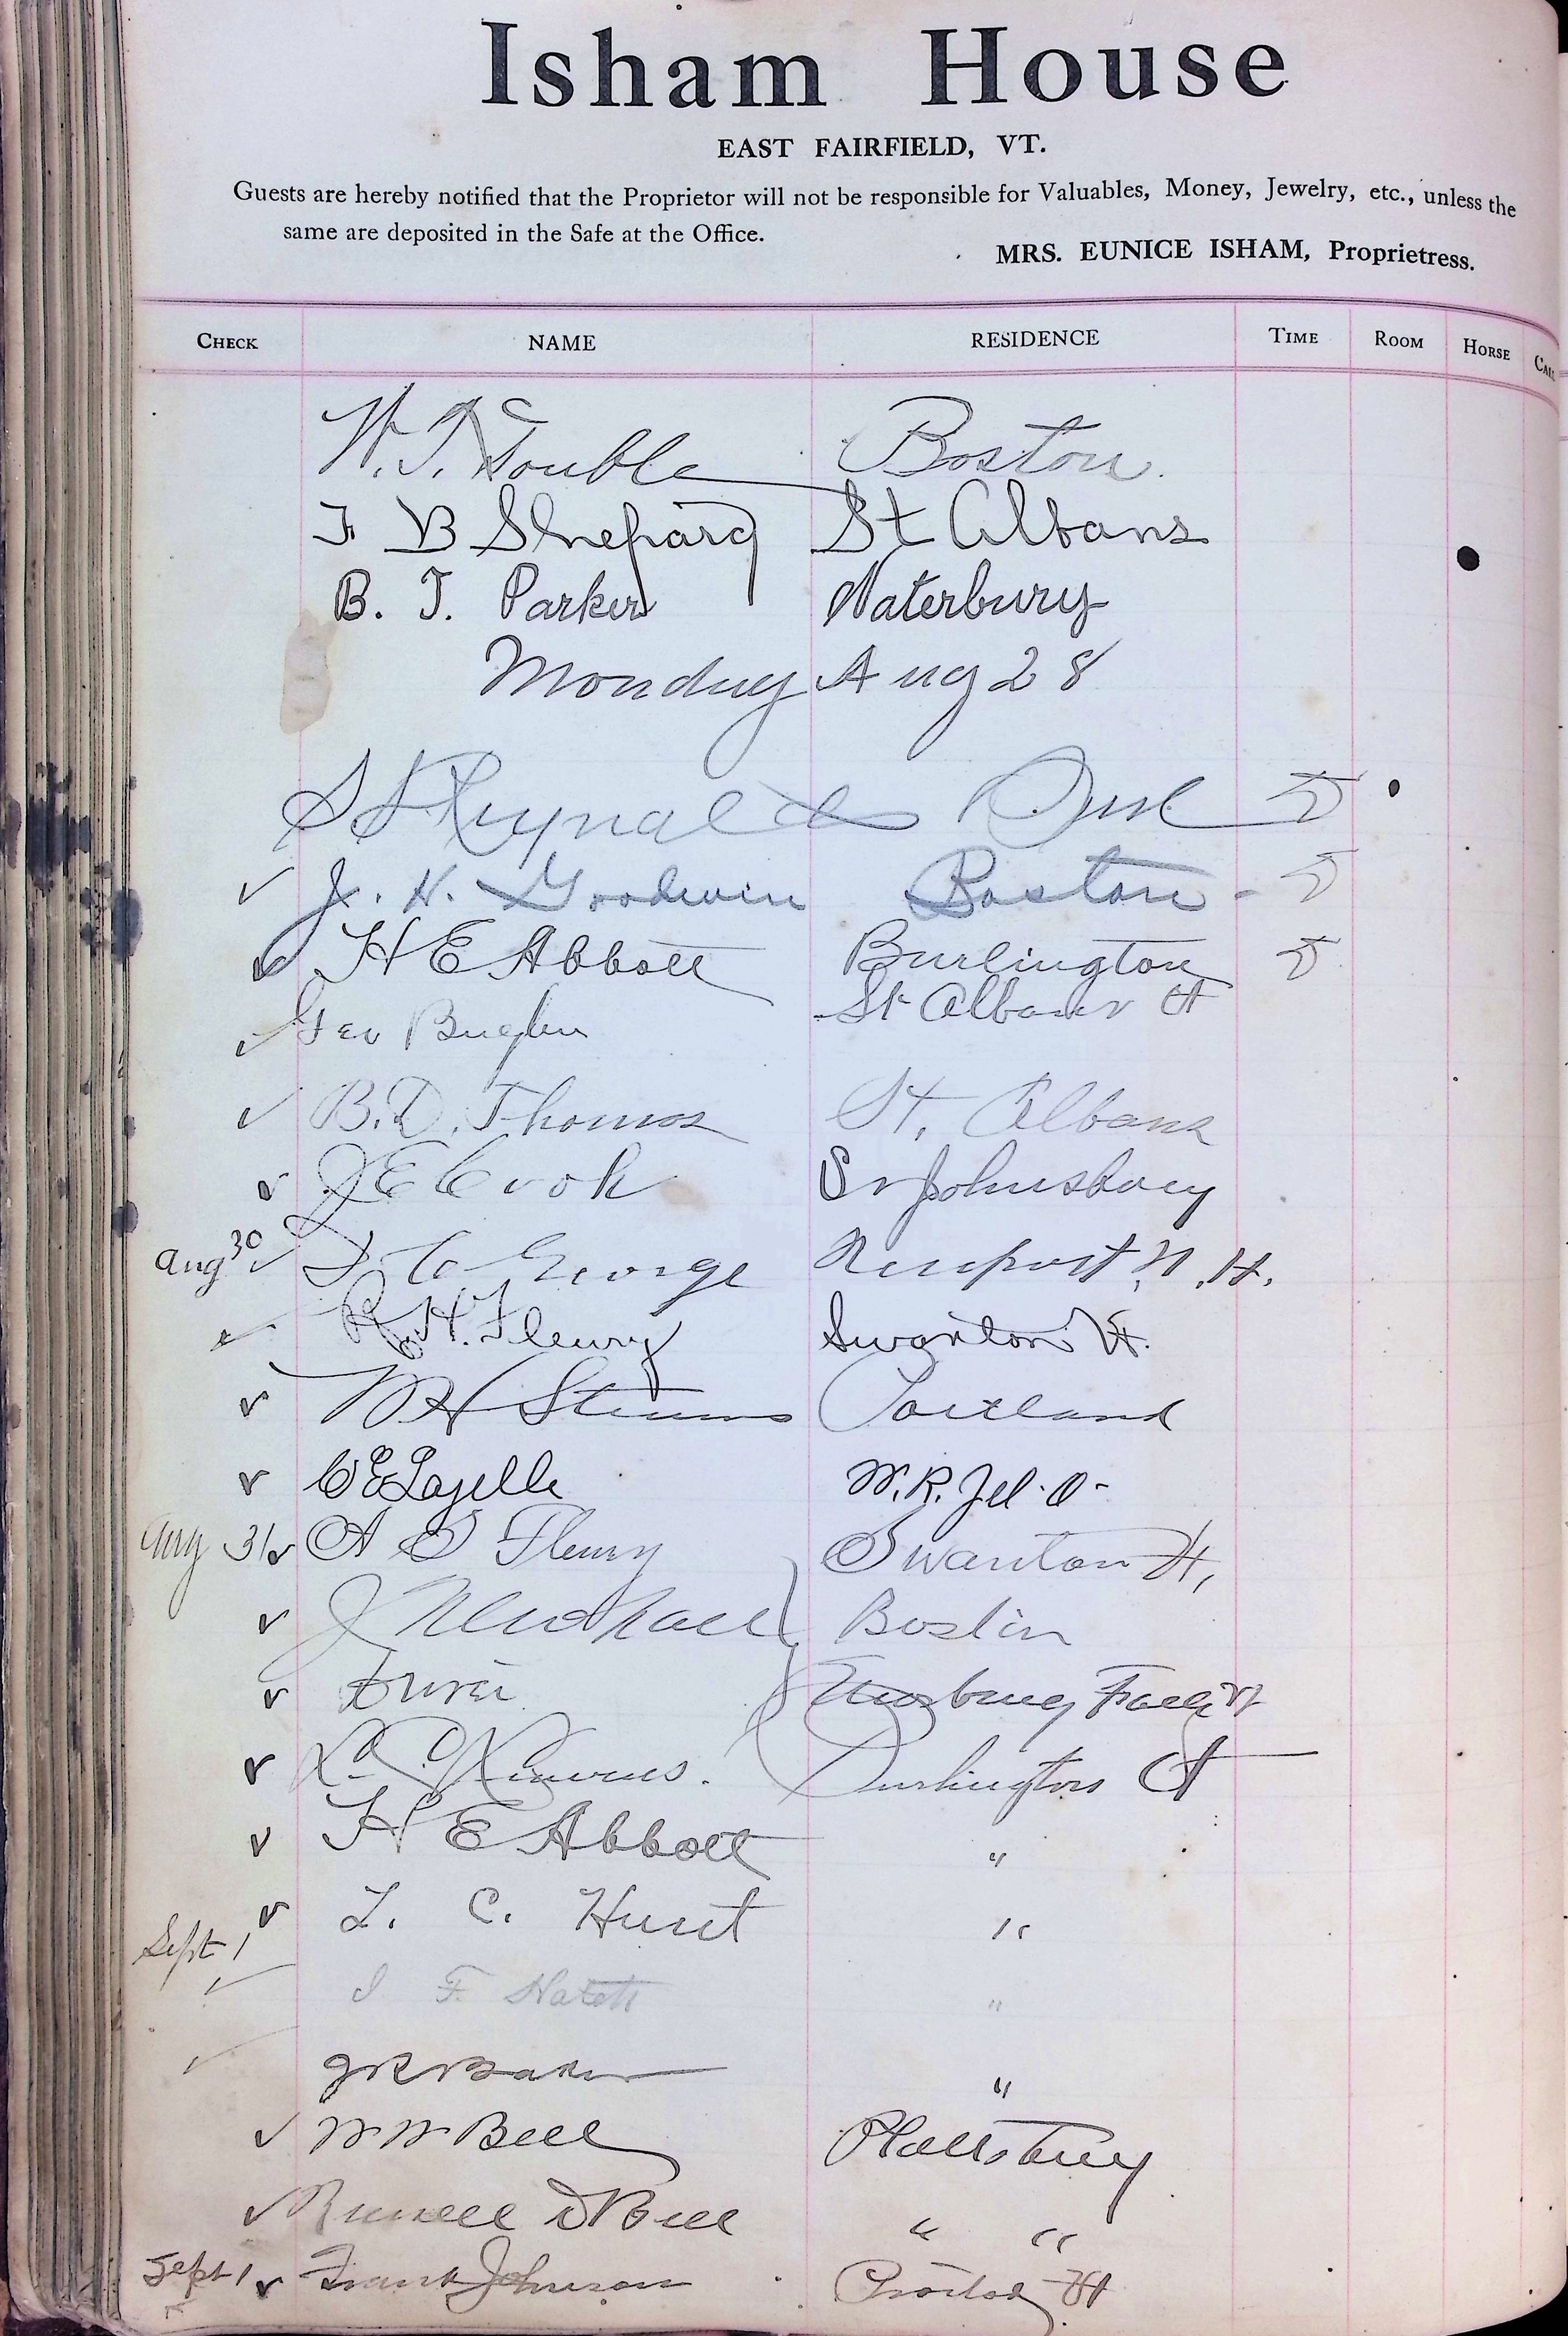 Isham House
EAST FAIRFIELD, VT.
Guests are hereby notified that the Proprietor will not be responsible for Valuables, Money, Jewelry, etc., unless the
same are deposited in the Safe at the Office.
MRS. EUNICE ISHAM, Proprietress.
CHECK NAME RESIDENCE TIME ROOM HORSE
W. T. Boston.
F B Shepard St Albans
B. T. Parker Waterbury
Monday Aug 28
Reynolds
J. H. Goodwin Boston -
H E Abbott Burlington
Geo St Albans Vt
B. D. Thomas St. Albans
J E Cook St Johnsbury
Aug 30 George Newport, N. H.
R. H. Fleury Swanton Vt.
Stevens Portland
C E Lazelle W. R. Jel-O-
Aug 31 A S Fleury Swanton Vt,
J Mendhall Boston
Driver Enosburg Falls Vt
Burlington Vt
H E Abbott "
L. C. Hunt "
Sept 1
F. Hatch "
J R Baker "
W W Bell Plattsburg
Russell D Bell " "
Sept 1 Frank Johnson Proctor Vt